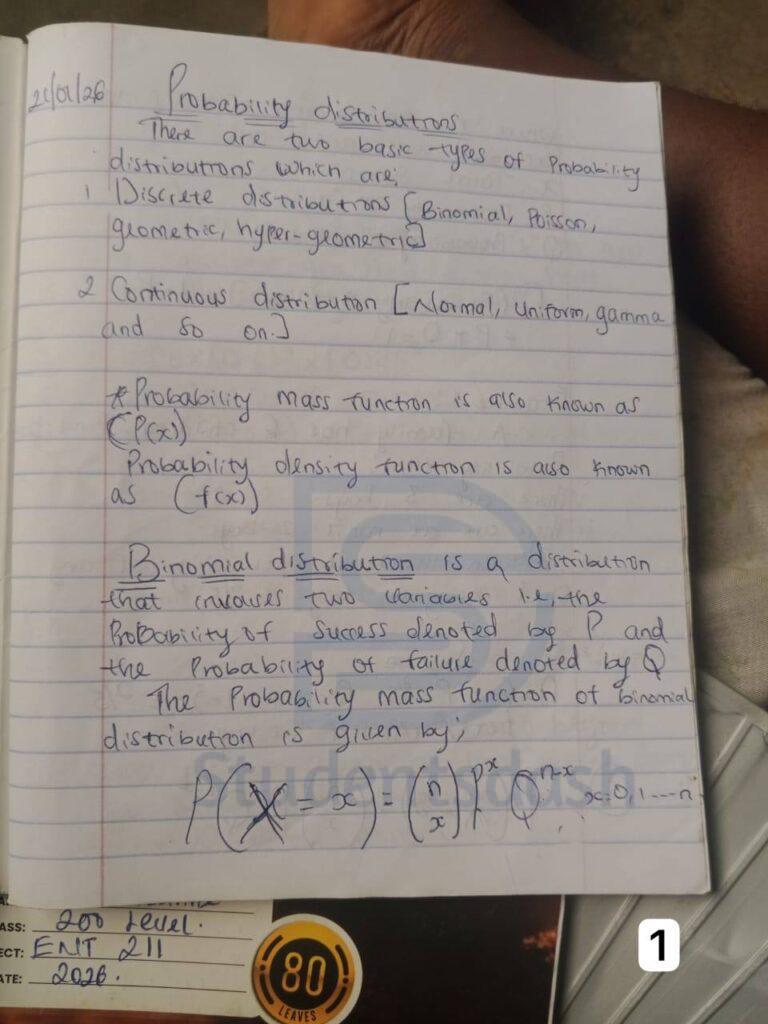 21/01/26
Probability distributions
There are two basic types of Probability
distributions which are;
1 Discrete distributions [Binomial, Poisson,
geometric, hyper-geometric]
2 Continuous distribution [Normal, Uniform, gamma
and so on.]
* Probability mass function is also known as
(P(x))
Probability density function is also known
as (f(x))
Binomial distribution is a distribution
that involves two variables i.e, the
Probability of Success denoted by P and
the Probability of failure denoted by Q
The Probability mass function of binomial
distribution is given by;
P(X = x) = (n x) P^x Q^n-x, x=0,1---n
Studentsdash
ASS: 200 Level.
ECT: ENT 211
ATE: 2026.
80
LEAVES
1